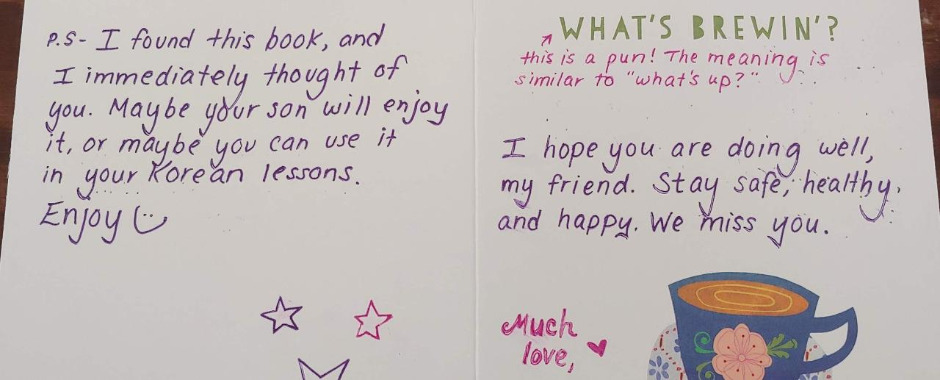 P.S- I found this book, and
I immediately thought of
you. Maybe your son will enjoy
it, or maybe you can use it
in your Korean lessons.
Enjoy
WHAT'S BREWIN'?
this is a pun! The meaning is
similar to "what's up?"
I hope you are doing well,
my friend. Stay safe, healthy,
and happy. We miss you.
Much
love,